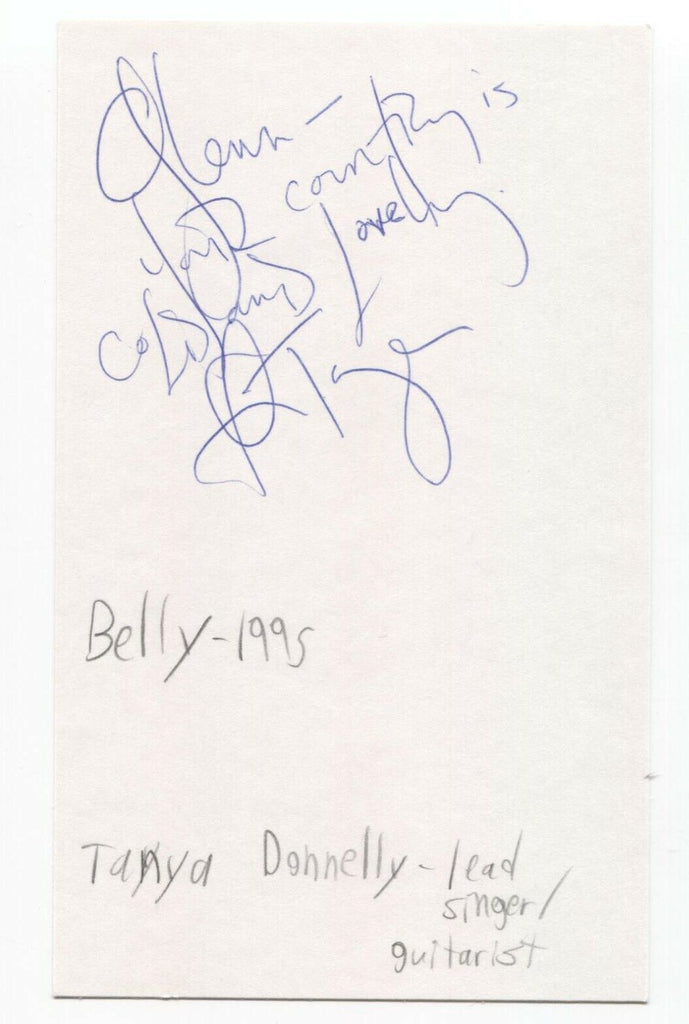 Glenn -
your country is
lovely.
Belly-1995
Tanya Donnelly - lead
singer/
guitarist